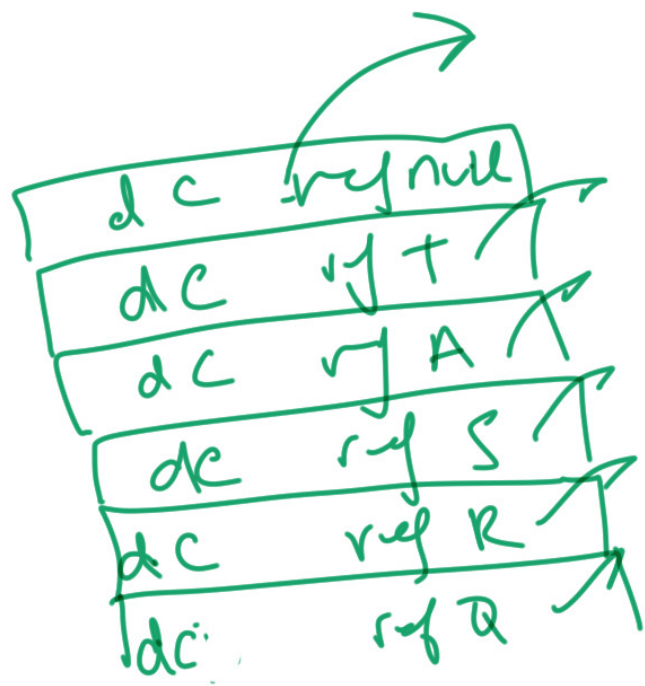 dC ref null
dC ref T
dC ref A
dC ref S
dC ref R
dC ref Q